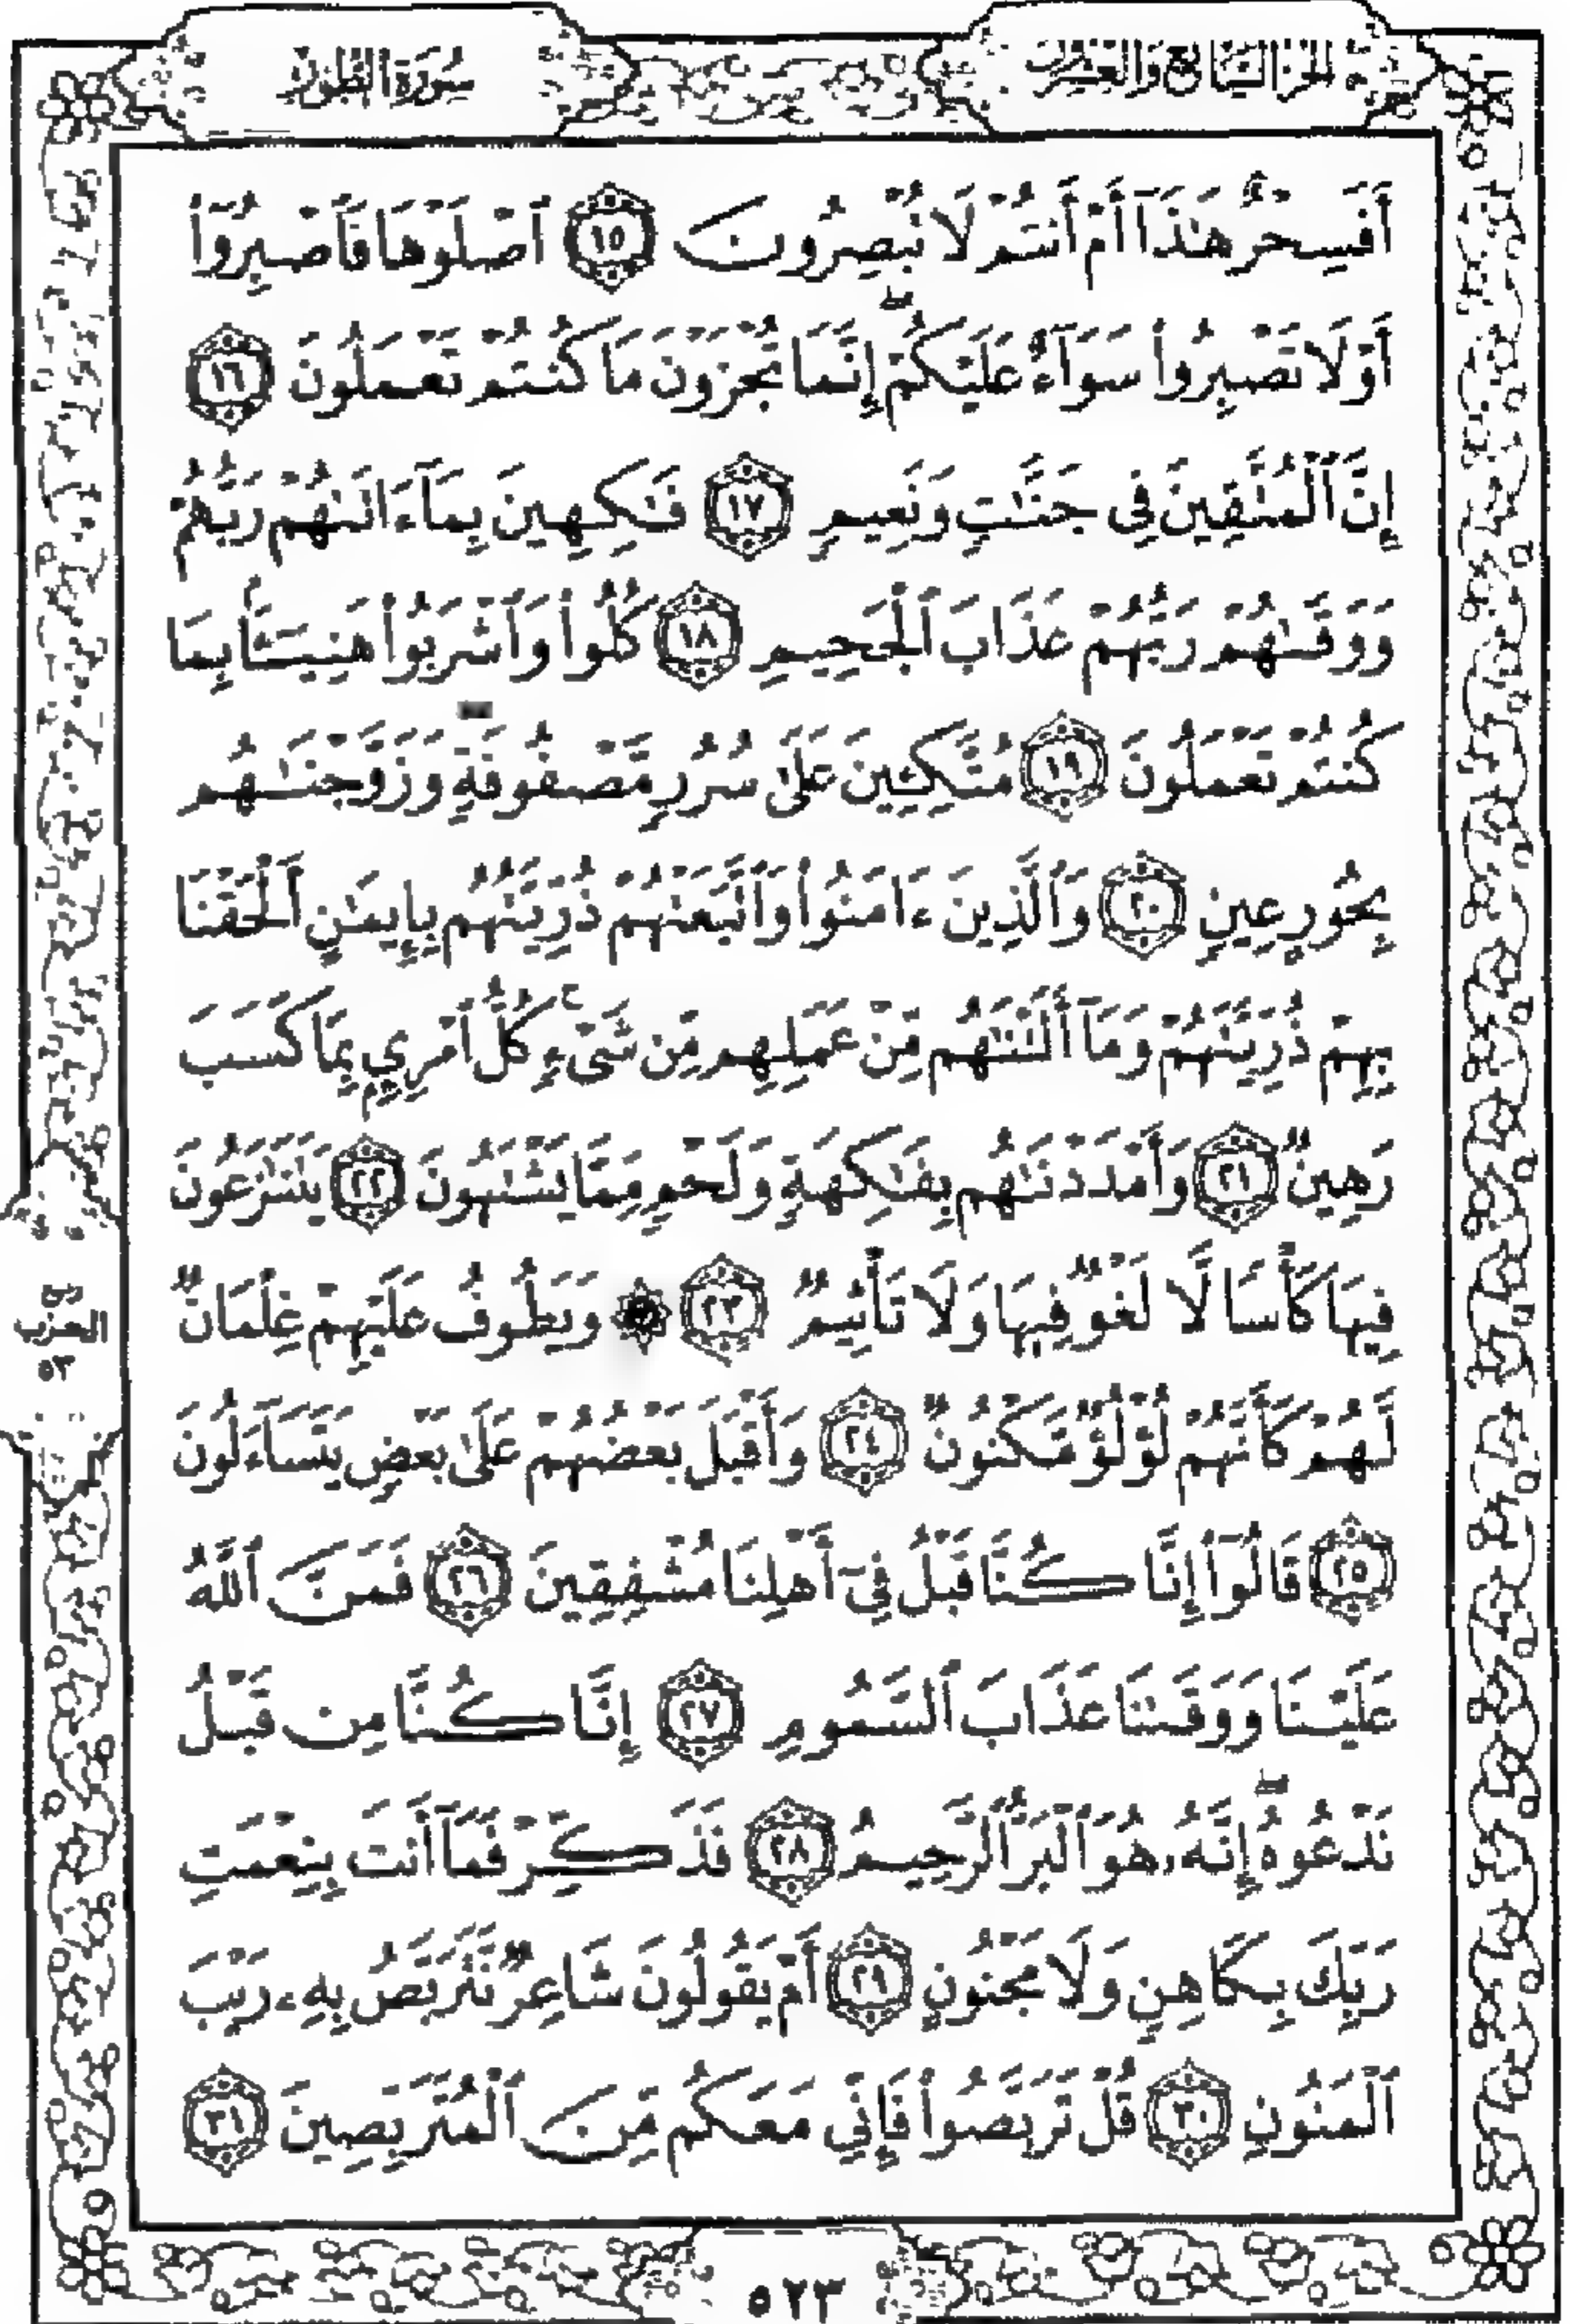 الجزء السابع والعشرون
سورة الطور
أَفَسِحْرٌ هَٰذَآ أَمْ أَنتُمْ لَا تُبْصِرُونَ ﴿١٥﴾ ٱصْلَوْهَا فَٱصْبِرُوٓا۟
أَوْ لَا تَصْبِرُوا۟ سَوَآءٌ عَلَيْكُمْ ۖ إِنَّمَا تُجْزَوْنَ مَا كُنتُمْ تَعْمَلُونَ ﴿١٦﴾
إِنَّ ٱلْمُتَّقِينَ فِى جَنَّٰتٍ وَنَعِيمٍ ﴿١٧﴾ فَٰكِهِينَ بِمَآ ءَاتَىٰهُمْ رَبُّهُمْ
وَوَقَىٰهُمْ رَبُّهُمْ عَذَابَ ٱلْجَحِيمِ ﴿١٨﴾ كُلُوا۟ وَٱشْرَبُوا۟ هَنِيٓـًٔۢا بِمَا
كُنتُمْ تَعْمَلُونَ ﴿١٩﴾ مُتَّكِـِٔينَ عَلَىٰ سُرُرٍ مَّصْفُوفَةٍ ۖ وَزَوَّجْنَٰهُم
بِحُورٍ عِينٍ ﴿٢٠﴾ وَٱلَّذِينَ ءَامَنُوا۟ وَٱتَّبَعَتْهُمْ ذُرِّيَّتُهُم بِإِيمَٰنٍ أَلْحَقْنَا
بِهِمْ ذُرِّيَّتَهُمْ وَمَآ أَلَتْنَٰهُم مِّنْ عَمَلِهِم مِّن شَىْءٍ ۚ كُلُّ ٱمْرِئٍۭ بِمَا كَسَبَ
رَهِينٌ ﴿٢١﴾ وَأَمْدَدْنَٰهُم بِفَٰكِهَةٍ وَلَحْمٍ مِّمَّا يَشْتَهُونَ ﴿٢٢﴾ يَتَنَٰزَعُونَ
فِيهَا كَأْسًا لَّا لَغْوٌ فِيهَا وَلَا تَأْثِيمٌ ﴿٢٣﴾ ۞ وَيَطُوفُ عَلَيْهِمْ غِلْمَانٌ
لَّهُمْ كَأَنَّهُمْ لُؤْلُؤٌ مَّكْنُونٌ ﴿٢٤﴾ وَأَقْبَلَ بَعْضُهُمْ عَلَىٰ بَعْضٍ يَتَسَآءَلُونَ
﴿٢٥﴾ قَالُوٓا۟ إِنَّا كُنَّا قَبْلُ فِىٓ أَهْلِنَا مُشْفِقِينَ ﴿٢٦﴾ فَمَنَّ ٱللَّهُ
عَلَيْنَا وَوَقَىٰنَا عَذَابَ ٱلسَّمُومِ ﴿٢٧﴾ إِنَّا كُنَّا مِن قَبْلُ
نَدْعُوهُ ۖ إِنَّهُۥ هُوَ ٱلْبَرُّ ٱلرَّحِيمُ ﴿٢٨﴾ فَذَكِّرْ فَمَآ أَنتَ بِنِعْمَتِ
رَبِّكَ بِكَاهِنٍ وَلَا مَجْنُونٍ ﴿٢٩﴾ أَمْ يَقُولُونَ شَاعِرٌ نَّتَرَبَّصُ بِهِۦ رَيْبَ
ٱلْمَنُونِ ﴿٣٠﴾ قُلْ تَرَبَّصُوا۟ فَإِنِّى مَعَكُم مِّنَ ٱلْمُتَرَبِّصِينَ ﴿٣١﴾
الحزب
٥٣
٥٢٣